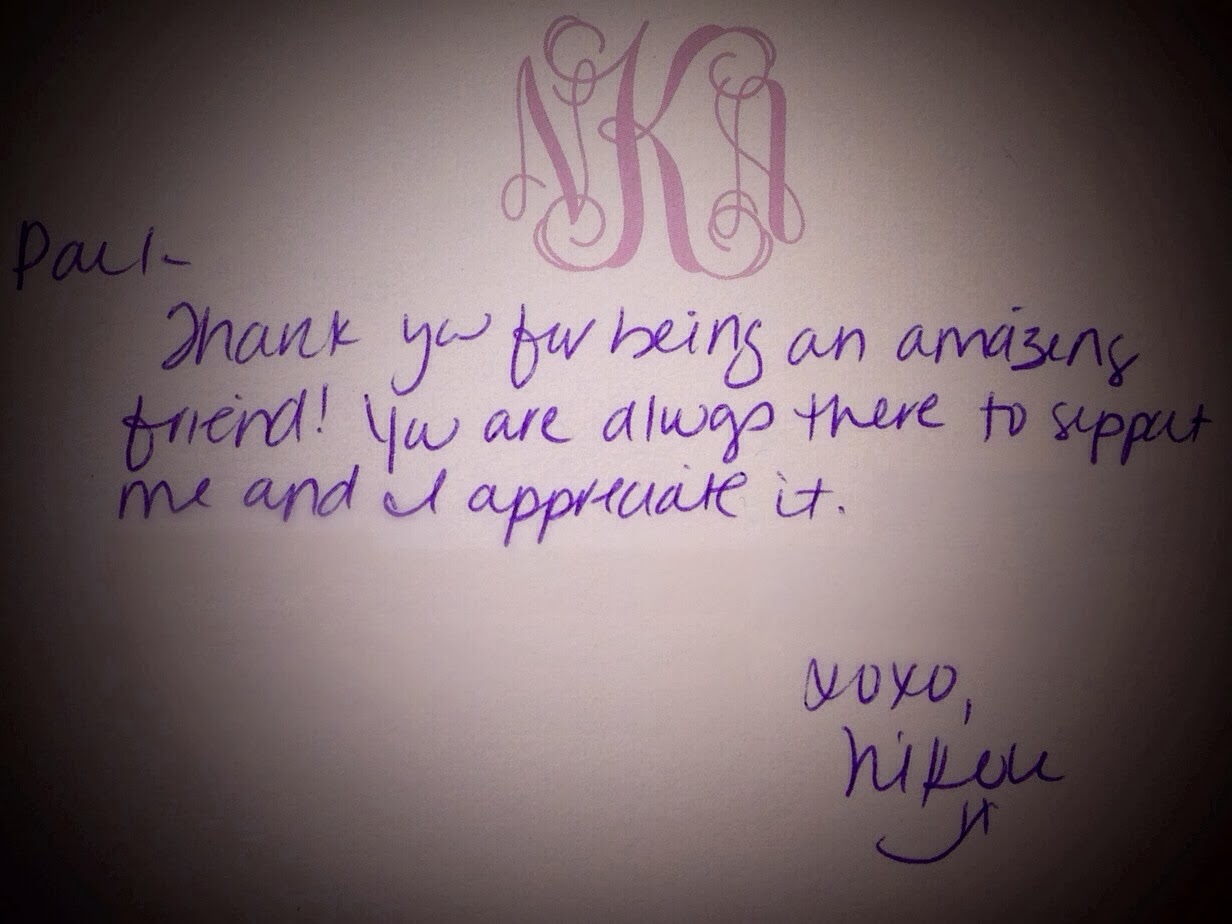 NKA
Paul-
Thank you for being an amazing
friend! You are always there to support
me and I appreciate it.
xoxo,